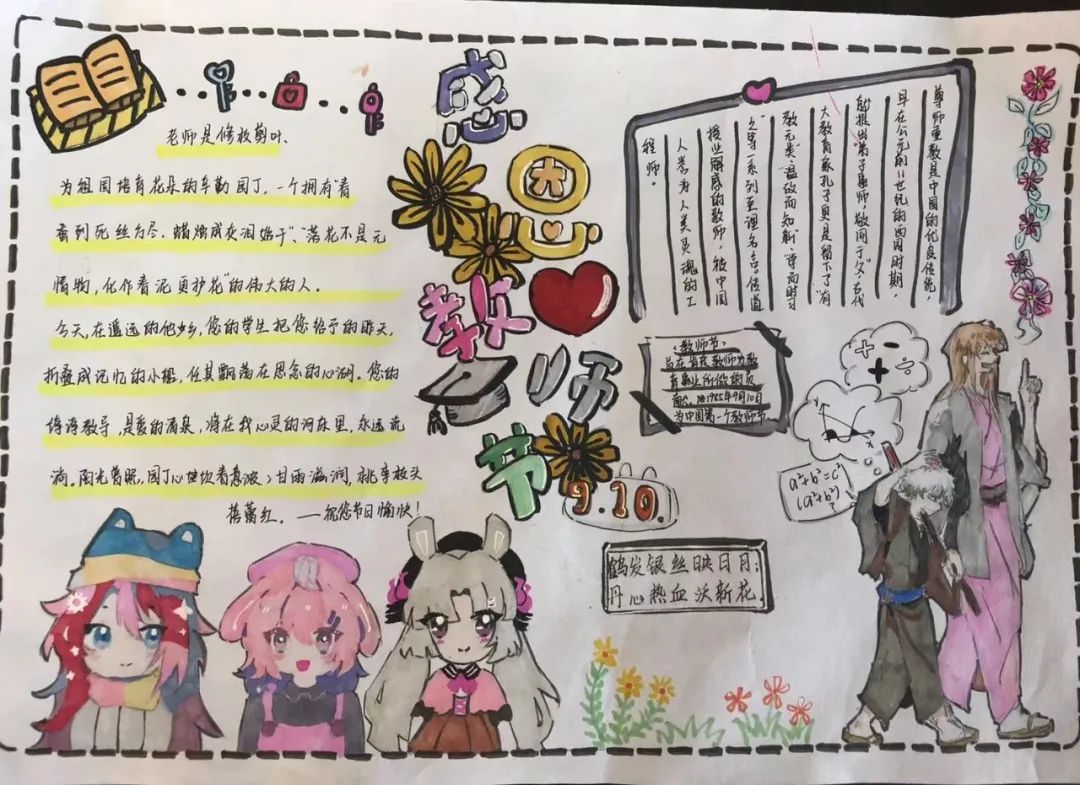 老师是修枝剪叶、
为祖国培育花朵的辛勤园丁,一个拥有"春
蚕到死丝方尽,蜡烛成灰泪始干"、"落花不是无
情物,化作春泥更护花"的伟大的人。
今天,在遥远的他乡,您的学生把您给予的昨天,
折叠成记忆的小船,任其飘荡在思念的心湖。您的
谆谆教导,是爱的涌泉,将在我心灵的河床里,永远流
淌。阳光普照,园丁心坎春意浓;甘雨滋润,桃李枝头
蓓蕾红。——祝您节日愉快!
感
恩
教
师
节
9.10.
尊师重教是中国的优良传统,
早在公元前11世纪的西周时期,
就提出"弟子事师,敬同于父",古代
大教育家孔子更是留下了"有
教无类"、"温故而知新"、"学而时习
之"等一系列至理名言。传道
授业解惑的教师,被中国
人誉为人类灵魂的工
程师。
《教师节》
旨在肯定教师为教
育事业所做的贡
献。1985年9月10日
为中国第一个教师节
+ - + ÷
a²+b²=c²
(a²+b²)?
鹤发银丝映日月;
丹心热血沃新花.